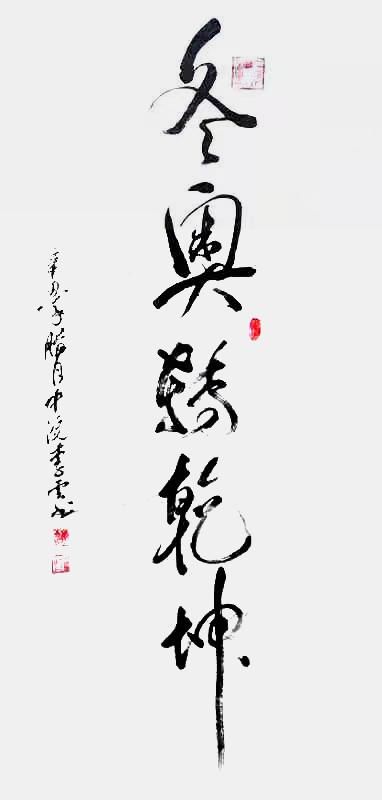 冬奥乾坤
辛丑年腊月中浣李雲书